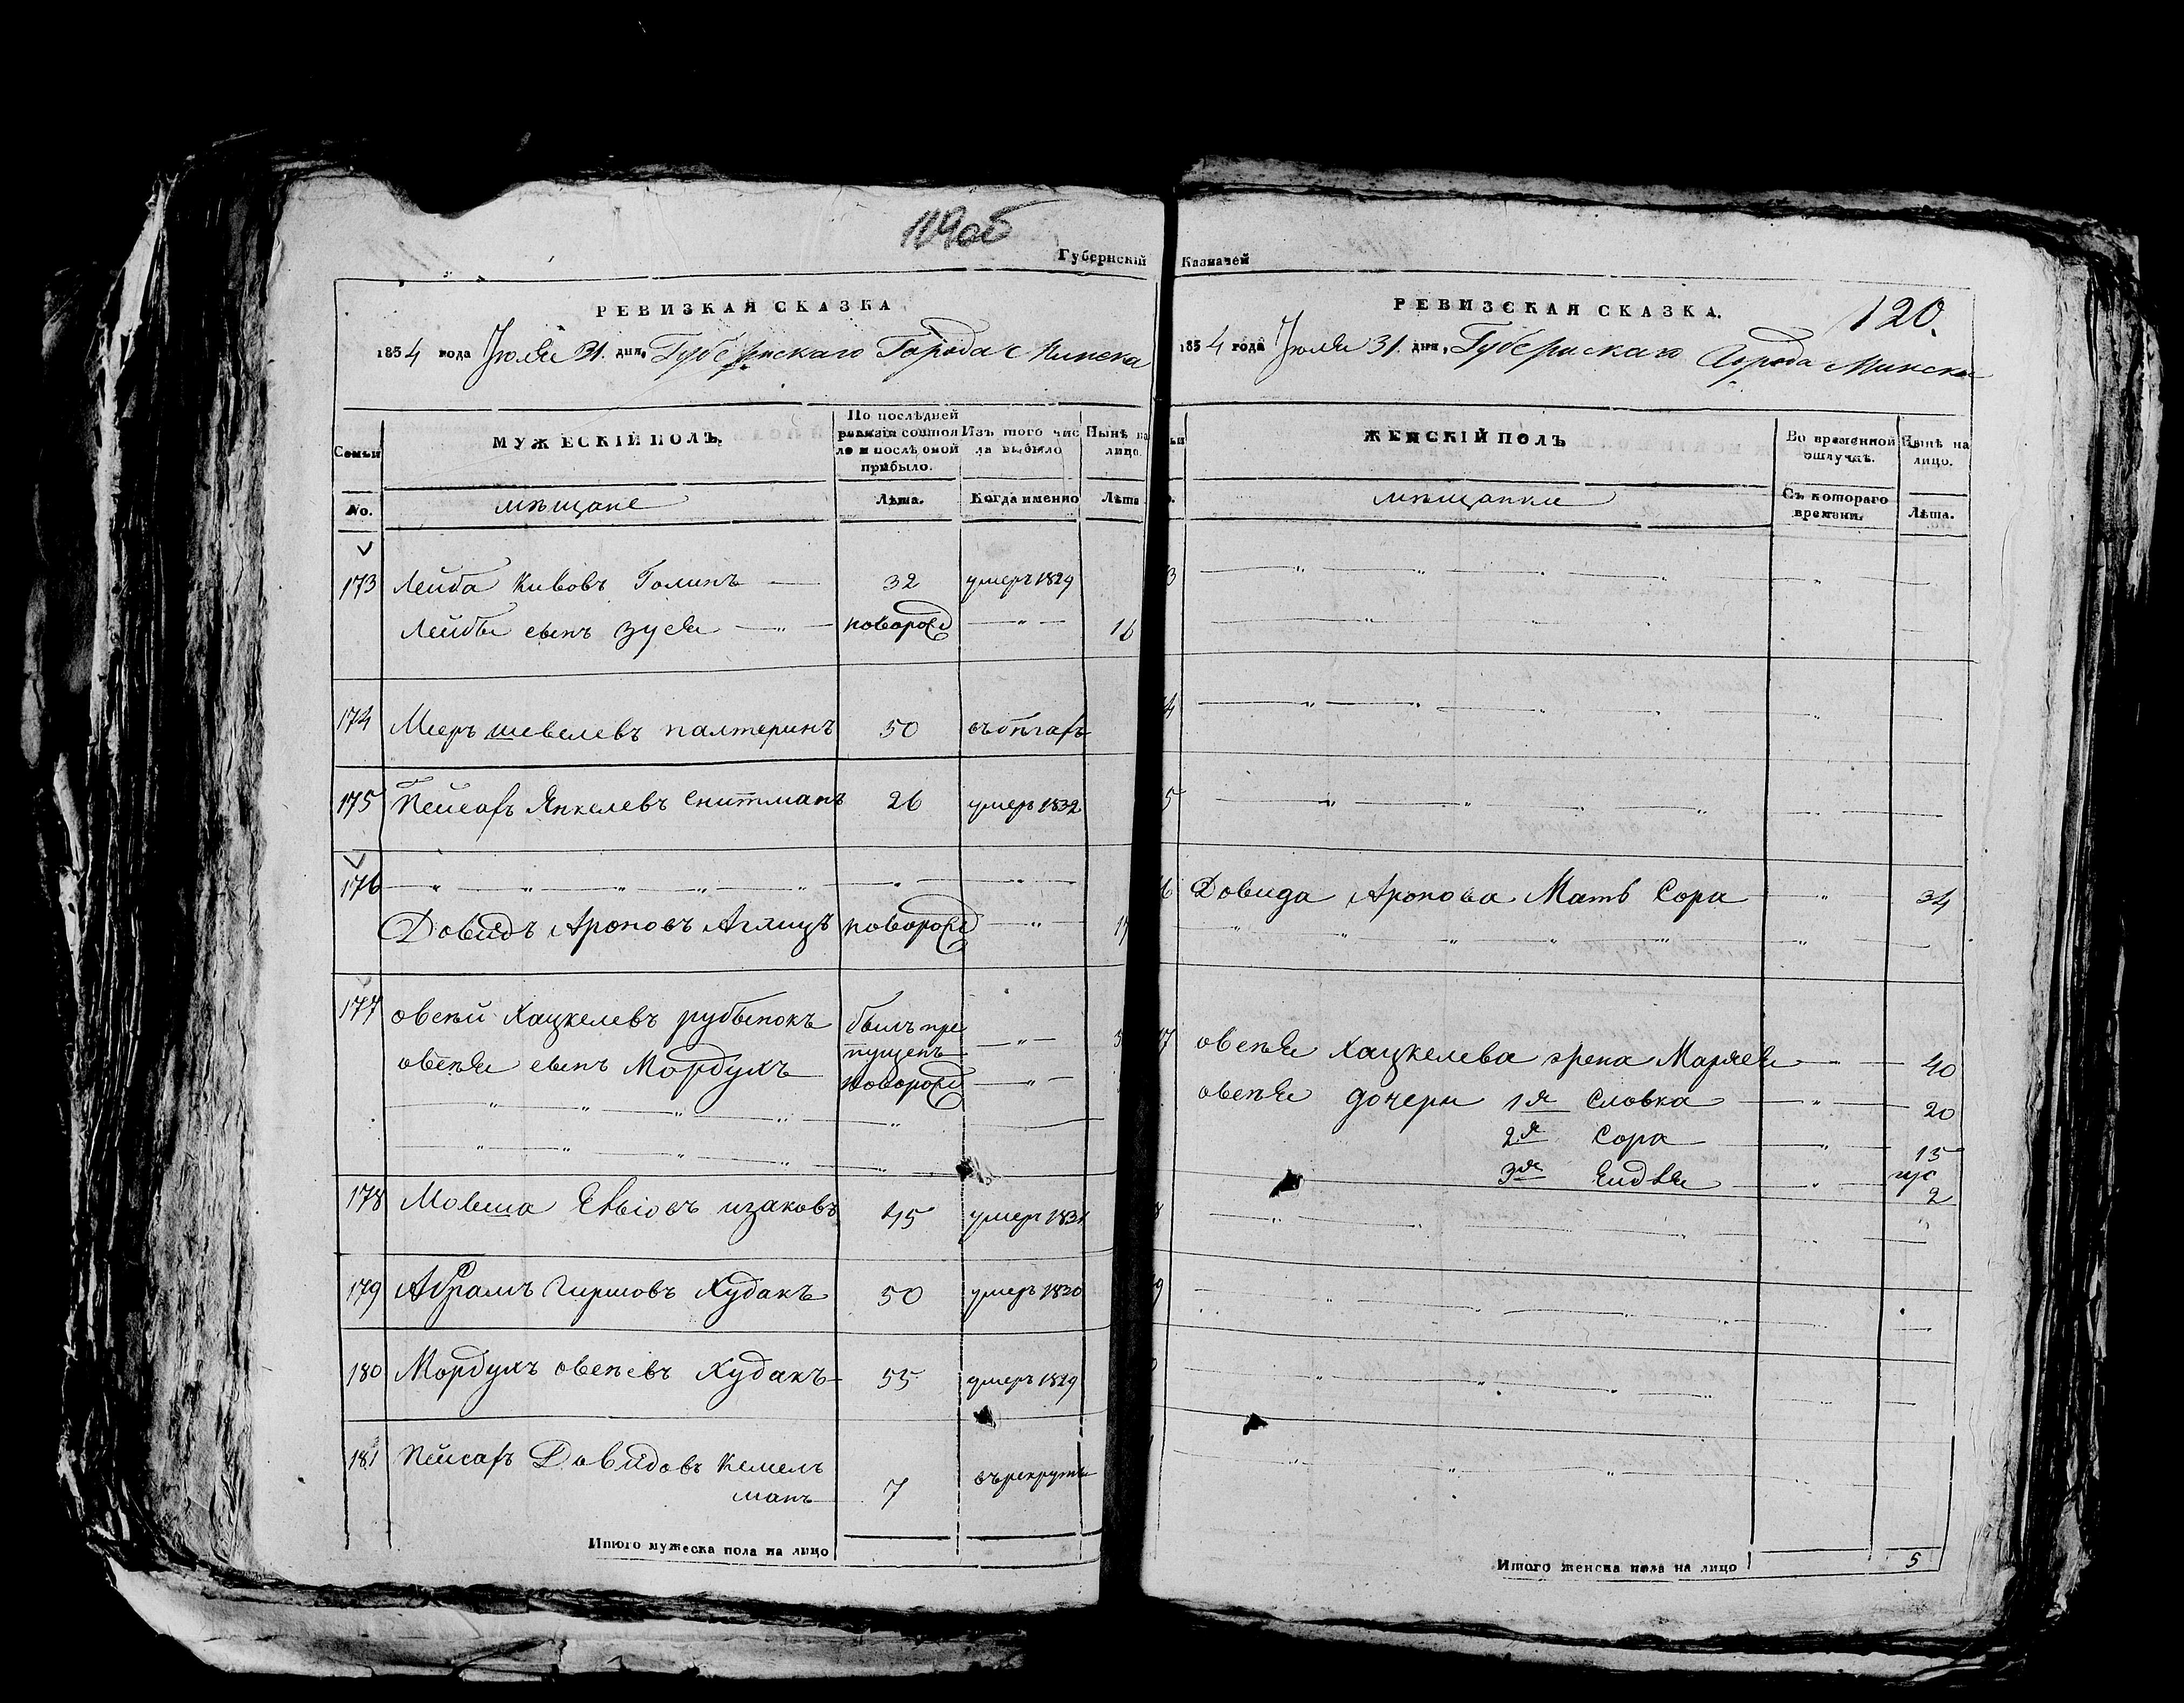 119об
Губернскій
РЕВИЗКАЯ СКАЗКА
1854 года Іюля 31. дня, Губернскаго Города Минска
Семьи
МУЖЕСКІЙ ПОЛЪ.
По послѣдней
ревизіи состоя
ло и послѣ оной
прибыло.
Изъ того чис
ла выбыло
Нынѣ на
лицо.
No.
мѣщане
Лѣта.
Когда именно
Лѣта
173 Лейба Кивовъ Голинъ 32 умеръ 1829
Лейбы сынъ Зуся новорожд 16
174 Мееръ Шевелевъ Палтеринъ 50
175 Пейсахъ Янкелевъ Снитманъ 26 умеръ 1832
176
Довидъ Ароновъ новорожд
177 Овсѣй Хацкелевъ Рубенокъ былъ про
пущенъ
Овсѣя сынъ Мордухъ новорожд
178 Мовша 45 умеръ 1831
179 Абрамъ Гиршовъ Худакъ 50 умеръ 1830
180 Мордухъ Овсѣевъ Худакъ 55 умеръ 1829
181 Пейсахъ Довидовъ Кемель
манъ 7 въ рекруты
Итого мужеска пола на лицо
Казначей
РЕВИЗСКАЯ СКАЗКА.
120.
1854 года Іюля 31. дня, Губернскаго Города Минска
ЖЕНСКІЙ ПОЛЪ
Во временной
отлучкѣ.
Нынѣ на
лицо.
мѣщанки
Съ котораго
времени.
Лѣта.
Довида Аронова Мать Сора 34
Овсѣя Хацкелева жена Маряся 40
Овсѣя дочери 1я Словка 20
2я Сора 15
3я Ейдля
2
Итого женска пола на лицо 5